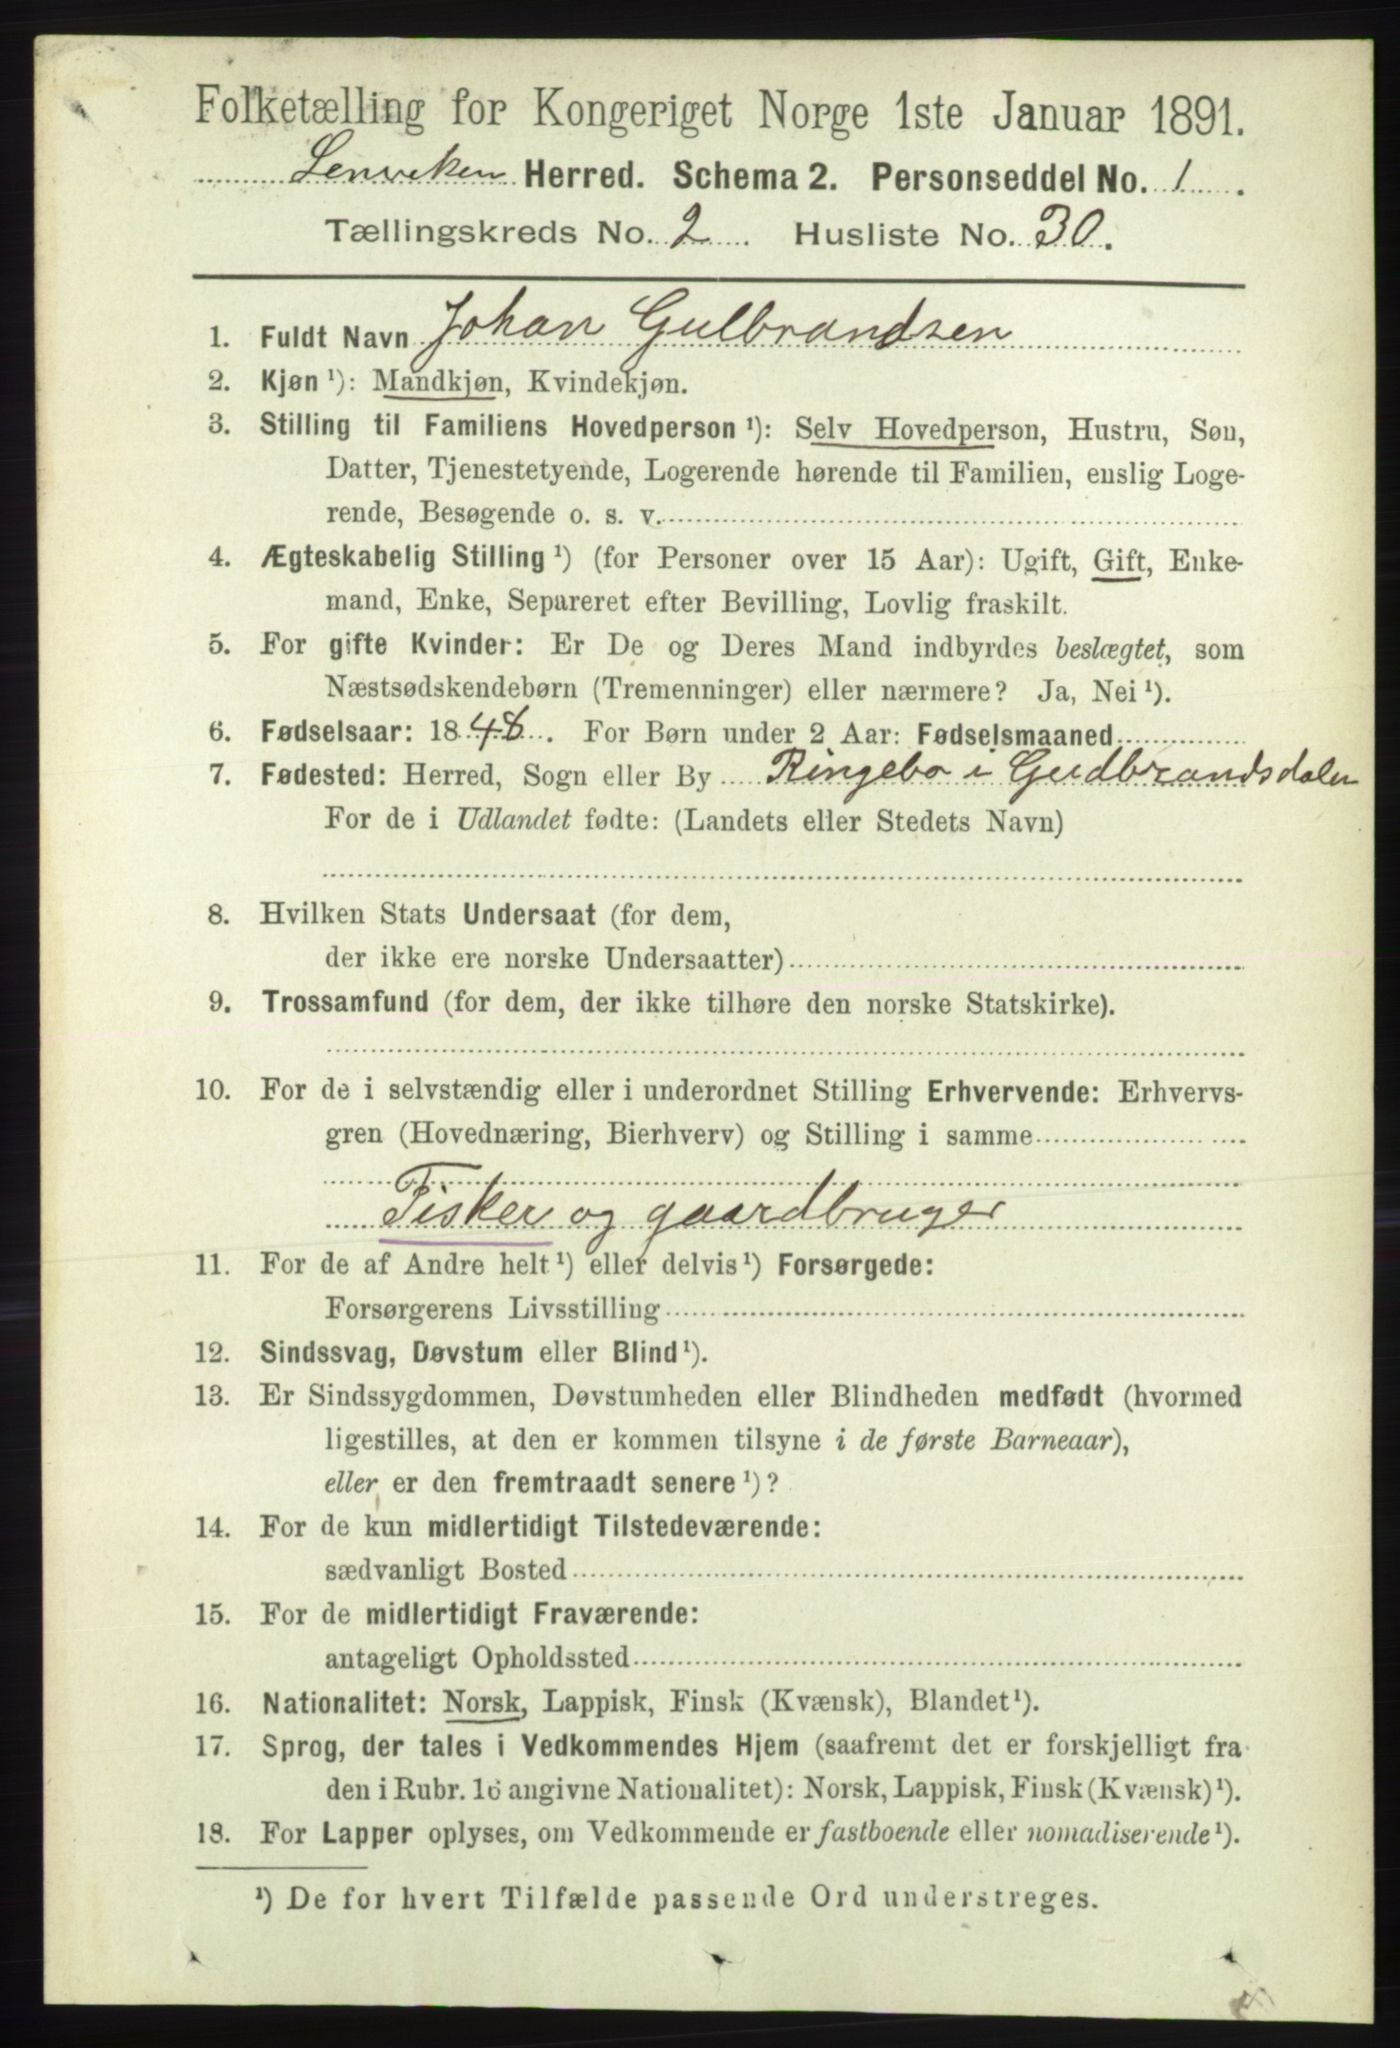 Folketælling for Kongeriget Norge 1ste Januar 1891.
Lenviken Herred. Schema 2. Personseddel No. 1.
Tællingskreds No. 2. Husliste No. 30.
1. Fuldt Navn Johan Gulbrandsen
2. Kjøn ¹): Mandkjøn, Kvindekjøn.
3. Stilling til Familiens Hovedperson ¹): Selv Hovedperson, Hustru, Søn,
Datter, Tjenestetyende, Logerende hørende til Familien, enslig Loge-
rende, Besøgende o. s. v.
4. Ægteskabelig Stilling ¹) (for Personer over 15 Aar): Ugift, Gift, Enke-
mand, Enke, Separeret efter Bevilling, Lovlig fraskilt.
5. For gifte Kvinder: Er De og Deres Mand indbyrdes beslægtet, som
Næstsødskendebørn (Tremenninger) eller nærmere? Ja, Nei ¹).
6. Fødselsaar: 1848. For Børn under 2 Aar: Fødselsmaaned
7. Fødested: Herred, Sogn eller By Ringebo i Gudbrandsdalen
For de i Udlandet fødte: (Landets eller Stedets Navn)
8. Hvilken Stats Undersaat (for dem,
der ikke ere norske Undersaatter)
9. Trossamfund (for dem, der ikke tilhøre den norske Statskirke).
10. For de i selvstændig eller i underordnet Stilling Erhvervende: Erhvervs-
gren (Hovednæring, Bierhverv) og Stilling i samme
Fisker og gaardbruger
11. For de af Andre helt ¹) eller delvis ¹) Forsørgede:
Forsørgerens Livsstilling
12. Sindssvag, Døvstum eller Blind ¹).
13. Er Sindssygdommen, Døvstumheden eller Blindheden medfødt (hvormed
ligestilles, at den er kommen tilsyne i de første Barneaar),
eller er den fremtraadt senere ¹)?
14. For de kun midlertidigt Tilstedeværende:
sædvanligt Bosted
15. For de midlertidigt Fraværende:
antageligt Opholdssted
16. Nationalitet: Norsk, Lappisk, Finsk (Kvænsk), Blandet ¹).
17. Sprog, der tales i Vedkommendes Hjem (saafremt det er forskjelligt fra
den i Rubr. 16 angivne Nationalitet): Norsk, Lappisk, Finsk (Kvænsk) ¹).
18. For Lapper oplyses, om Vedkommende er fastboende eller nomadiserende ¹).
¹) De for hvert Tilfælde passende Ord understreges.